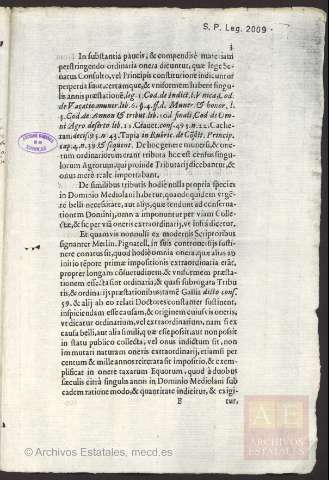 S. P. Leg. 2009
3
In substantia paucis, & compendiosè materiam
perstringendo ordinaria onera dicuntur, quæ lege Se-
natus Consulto, vel Principis constitutione indicuntur
perpetuà sunt, certamque, & vniformem habent singu-
lis annis præstationem, leg. 1. Cod. de Indict. l. Vnica.
de Vacatio. muner. lib. 10. §. 4. ff. d. Muner & honor. l.
3. Cod. de Annon & tribut. lib. 10. Cod. de Om-
ni Agro deserto lib. 11. 
De hoc genere munera, & onc-
rum ordinariorum erant tributa hæc est census singu-
lorum Agrorum, qui proinde Tributarij dicebantur, &
onus merè reale importabant.
De similibus tributis hodie nulla propria species
in Dominio Mediolani habetur, quando quidem vrgē-
te belli necessitate, aut alijs, quæ tendunt ad conserua-
tionem Dominij, onera imponuntur per viam Colle-
ctæ, & sic per viā oneris extraordinarij, vt infrà dicetur.
Et quamuis nonnulli ex modernis Scriptoribus
signanter Merlin. Pignatell. in suis controuersijs susti-
nere conatus sit, quod hodie omnia onera quæ alias ab
initio tēpore primæ impositionis extraordinaria erāt,
propter longam cōsuetudinem, & vniformem præsta-
tionem effecta sint ordinaria, & quasi subrogata Tribu-
tis, & ordinarijs præstationibus, tamē Gallia dicto cons.
59. & alij ab eo relati Doctores constanter sustinent,
inspiciendam esse causam, & originem cuiusuis oneris,
vt dicatur ordinarium, vel extraordinarium, nam si ex
causa belli, aut alia simili, quæ esse potest aut non potest
in statu publico collecta, vel onus indictum sit, non
immutari naturam oneris extraordinarij, etiamsi per
centum & mille annos reiterata sit impositio, & exem-
plificat in onere taxarum Equorum, quod à duobus
sæculis citrà singulis annis in Dominio Mediolani sub
eadem ratione modo, & quantitate indicitur, & exigi-
B tur,
AE
ARCHIVOS
ESTATALES
© Archivos Estatales, mecd.es